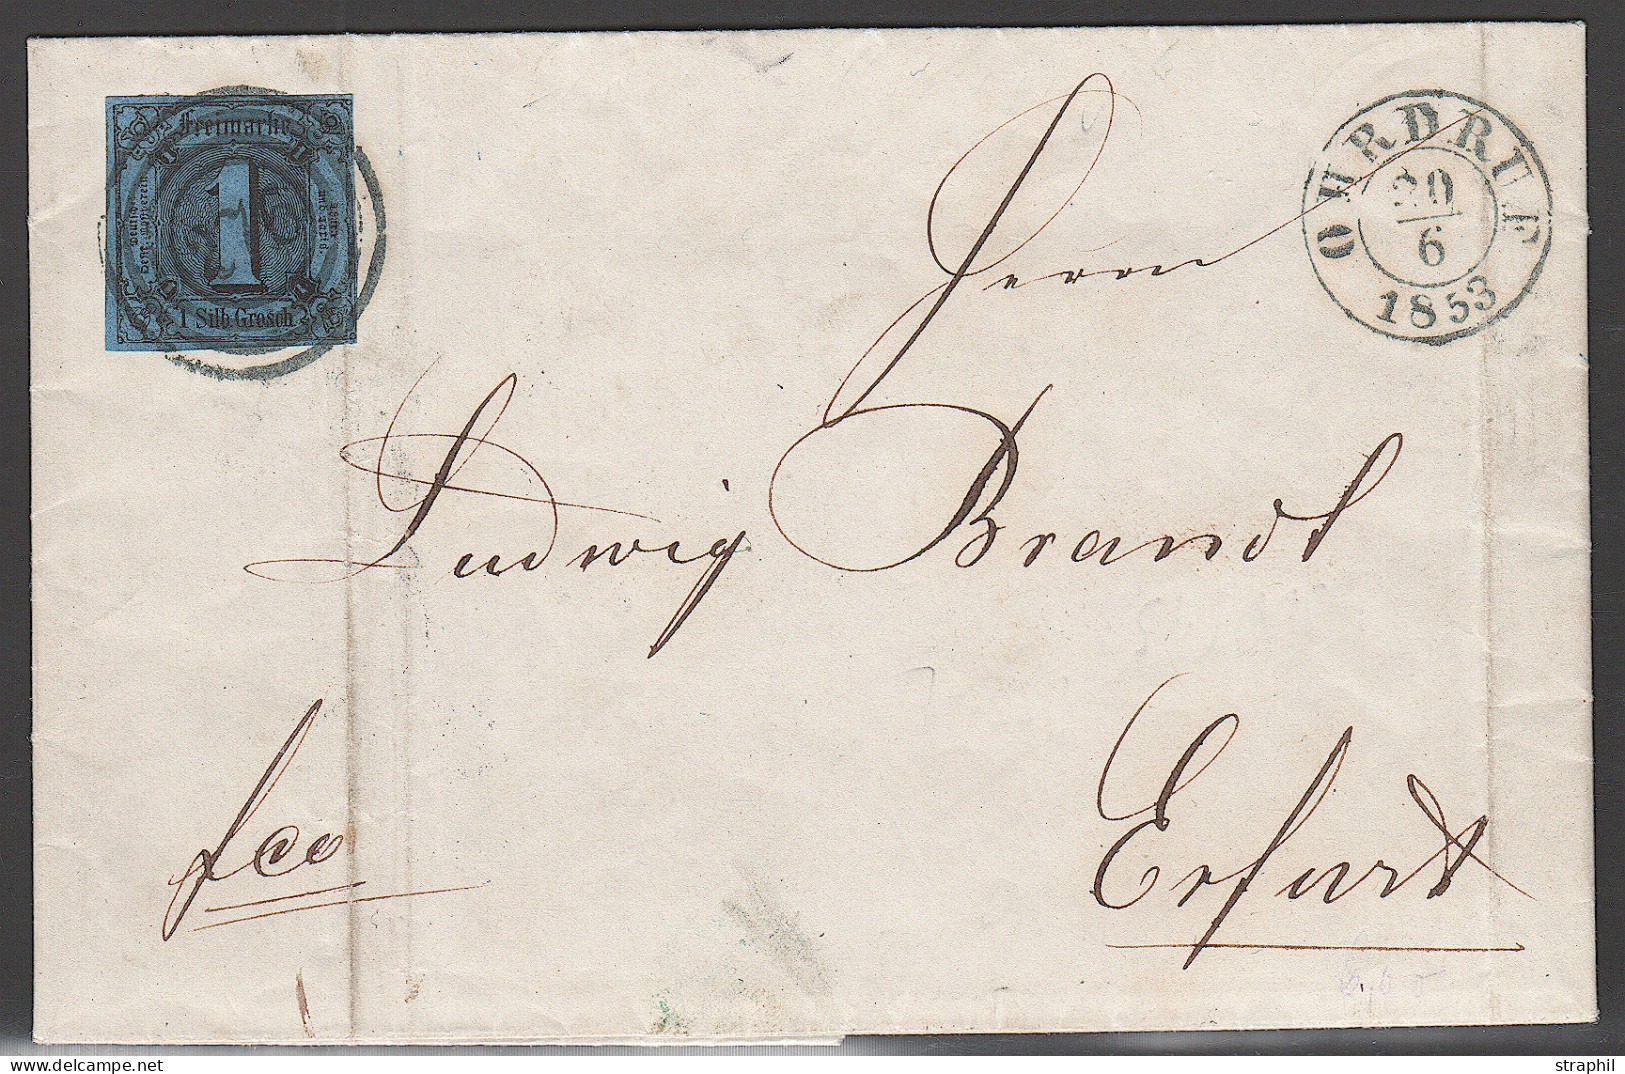 Freimarke
1
1 Silb. Grosch
OHRDRUF
20
6
1853
Herrn
Ludwig Brandt
fco
Erfurt
straphil